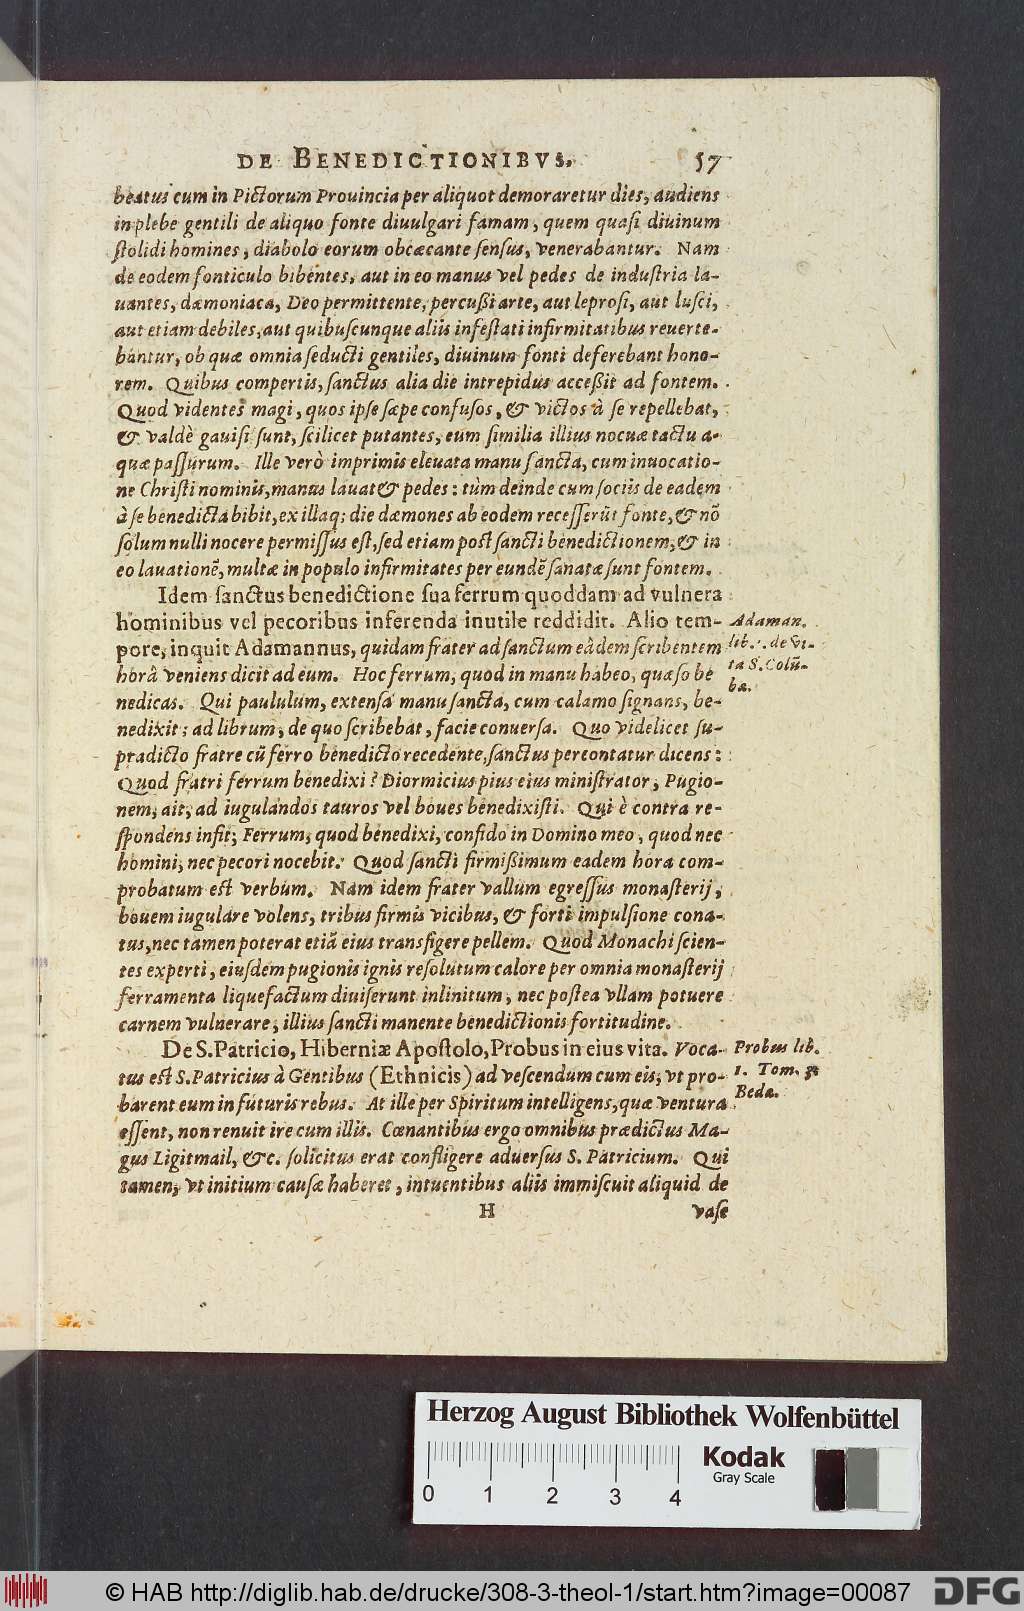 DE BENEDICTIONIBVS. 57
beatus cum in Pictorum Prouincia per aliquot demoraretur dies, audiens
in plebe gentili de aliquo fonte diuulgari famam, quem quasi diuinum
ſtolidi homines, diabolo eorum obcæcante ſenſus, venerabantur. Nam
de eodem fonticulo bibentes, aut in eo manus vel pedes de induſtria la-
uantes, dæmoniaca, Deo permittente, percußi arte, aut leproſi, aut luſci,
aut etiam debiles, aut quibuſcunque aliis infeſtati infirmitatibus reuerte-
bantur, ob quæ omnia ſeducti gentiles, diuinum fonti deferebant hono-
rem. Quibus compertis, ſanctus alia die intrepidus acceßit ad fontem.
Quod videntes magi, quos ipſe ſæpe confuſos, & victos à ſe repellebat,
& valdè gauiſi ſunt, ſcilicet putantes, eum ſimilia illius nocuæ tactu a-
quæ paſſurum. Ille verò imprimis eleuata manu ſancta, cum inuocatio-
ne Chriſti nominis, manus lauat & pedes: tùm deinde cum ſociis de eadem
à ſe benedicta bibit, ex illaq; die dæmones ab eodem receſſerūt fonte, & nō
ſolum nulli nocere permiſſus eſt, ſed etiam poſt ſancti benedictionem, & in
eo lauationē, multæ in populo infirmitates per eundē ſanatæ ſunt fontem.
Idem ſanctus benedictione ſua ferrum quoddam ad vulnera
hominibus vel pecoribus inferenda inutile reddidit. Alio tem- Adaman.
pore, inquit Adamannus, quidam frater ad ſanctum eâdem ſcribentem lib. . de vi-
horâ veniens dicit ad eum. Hoc ferrum, quod in manu habeo, quæſo be ta S. Colū-
nedicas. Qui paululum, extenſa manu ſancta, cum calamo ſignans, be- bæ.
nedixit; ad librum, de quo ſcribebat, facie conuerſa. Quo videlicet ſu-
pradicto fratre cū ferro benedicto recedente, ſanctus percontatur dicens:
Quod fratri ferrum benedixi? Diormicius pius eius miniſtrator, Pugio-
nem, ait, ad iugulandos tauros vel boues benedixiſti. Qui è contra re-
ſpondens infit; Ferrum, quod benedixi, confido in Domino meo, quod nec
homini, nec pecori nocebit. Quod ſancti firmißimum eadem hora com-
probatum eſt verbum. Nam idem frater vallum egreſſus monaſterij,
bouem iugulare volens, tribus firmis vicibus, & forti impulſione cona-
tus, nec tamen poterat etiā eius transfigere pellem. Quod Monachi ſcien-
tes experti, eiuſdem pugionis ignis reſolutum calore per omnia monaſterij
ferramenta liquefactum diuiſerunt inlinitum, nec poſtea vllam potuere
carnem vulnerare, illius ſancti manente benedictionis fortitudine.
De S. Patricio, Hiberniæ Apoſtolo, Probus in eius vita. Voca- Probus lib.
tus eſt S. Patricius à Gentibus (Ethnicis) ad veſcendum cum eis, vt pro- 1. Tom. 3.
barent eum in futuris rebus. At ille per Spiritum intelligens, quæ ventura Bedæ.
eſſent, non renuit ire cum illis. Cœnantibus ergo omnibus prædictus Ma-
gus Ligitmail, &c. ſolicitus erat confligere aduerſus S. Patricium. Qui
tamen, vt initium cauſæ haberet, intuentibus aliis immiſcuit aliquid de
H vaſe
Herzog August Bibliothek Wolfenbüttel
Kodak
Gray Scale
0 1 2 3 4
© HAB http://diglib.hab.de/drucke/308-3-theol-1/start.htm?image=00087
DFG